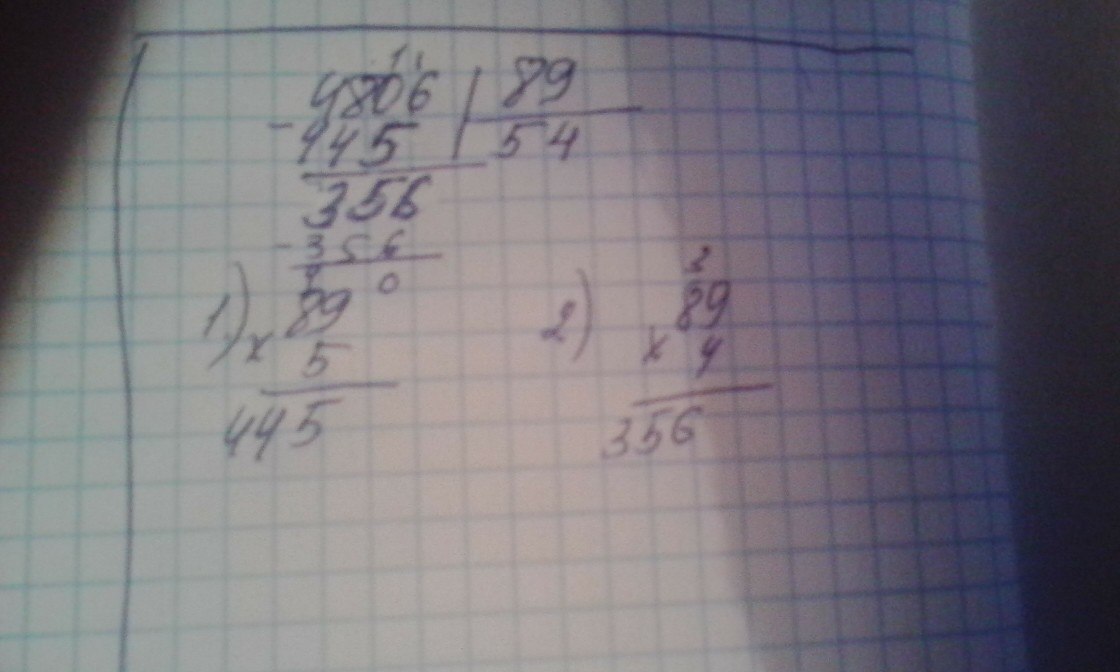 4806 | 89
- 445 | 54
356
- 356
0
1) 89
x 5
445
2) 2
89
x 4
356